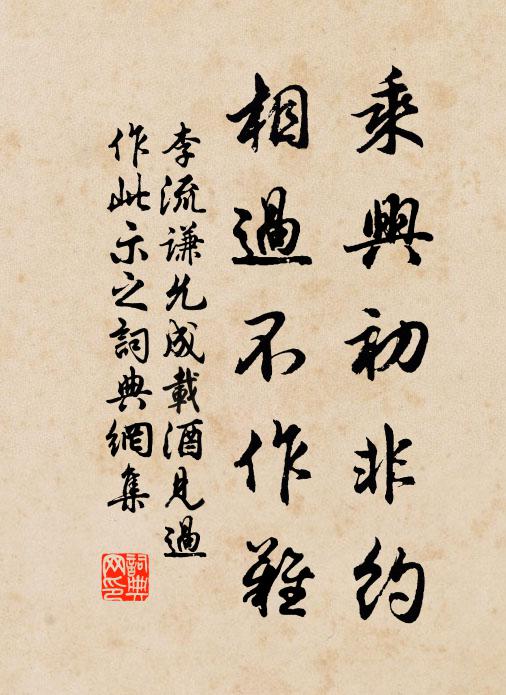 乘興初非約
相過不作難
李流謙允成載酒見過
作此示之詞典網集
詞典
网印